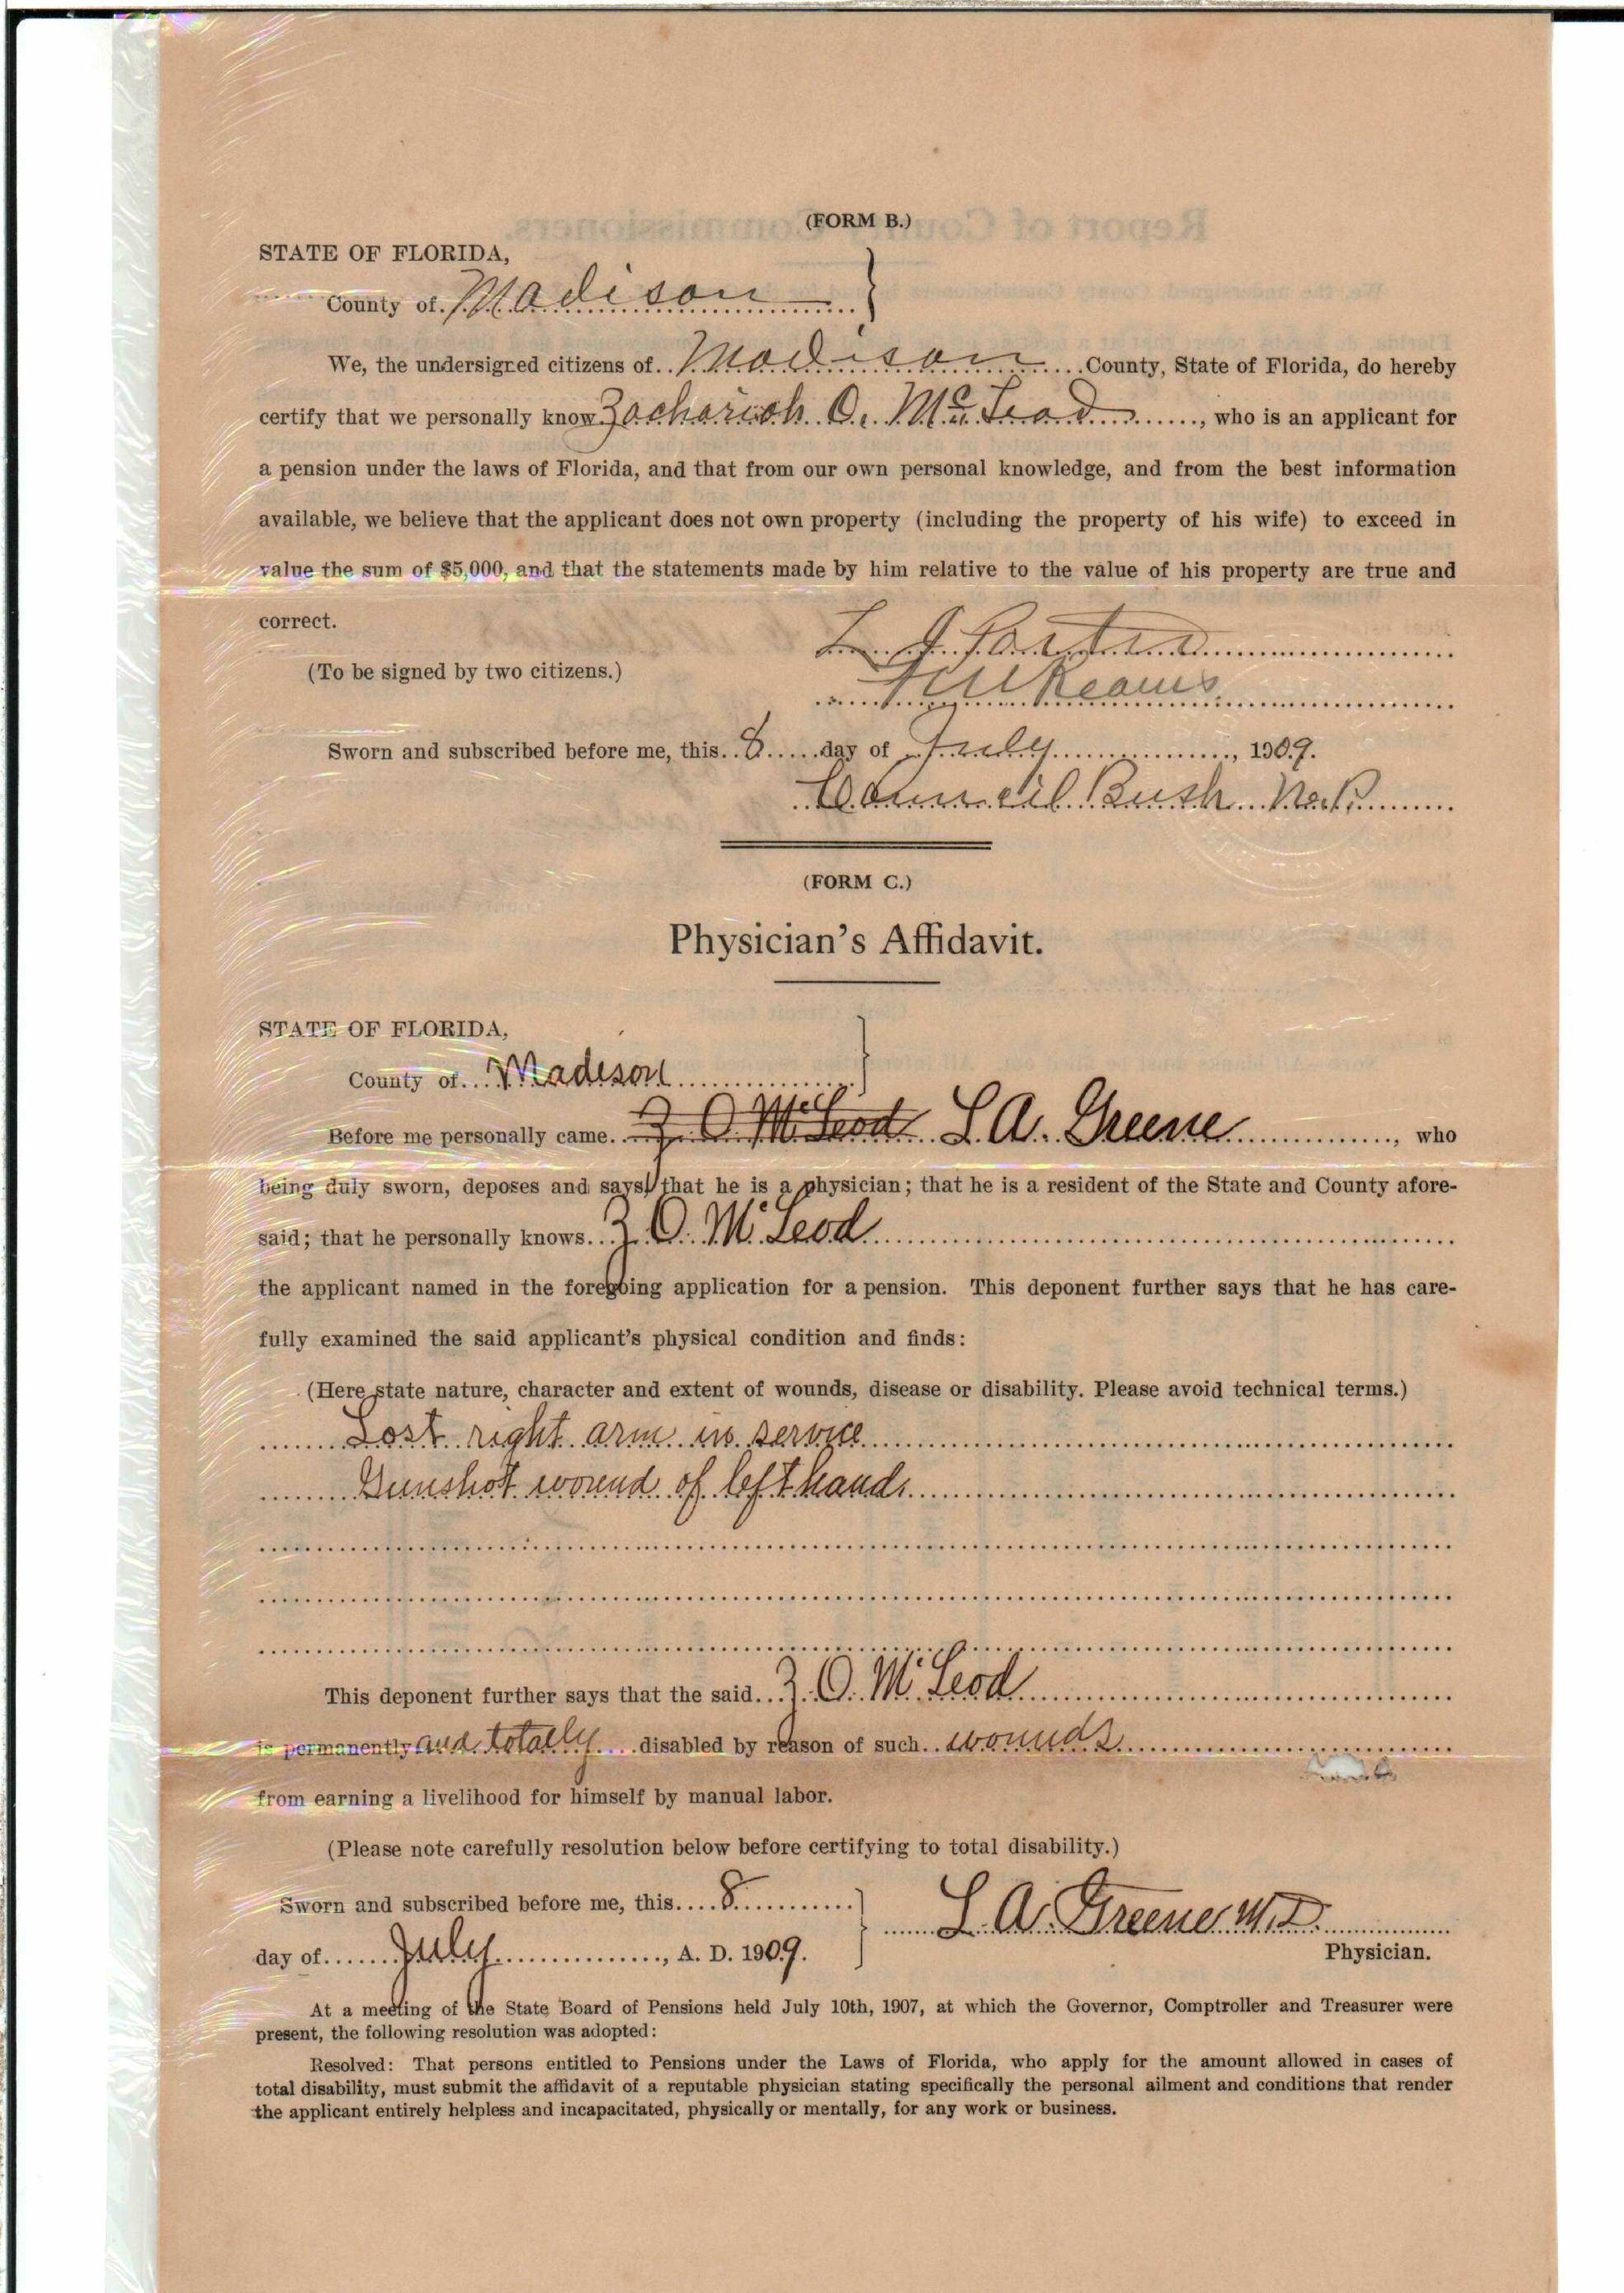 (FORM B.)
STATE OF FLORIDA,
County of Madison
We, the undersigned citizens of Madison County, State of Florida, do hereby
certify that we personally know Zachariah O. McLeod, who is an applicant for
a pension under the laws of Florida, and that from our own personal knowledge, and from the best information
available, we believe that the applicant does not own property (including the property of his wife) to exceed in
value the sum of $5,000, and that the statements made by him relative to the value of his property are true and
correct.
(To be signed by two citizens.)
Reams
Sworn and subscribed before me, this 8 day of July, 1909.
Council Bush N.P.
(FORM C.)
Physician's Affidavit.
STATE OF FLORIDA,
County of Madison
Before me personally came Z O McLeod L. A. Greene, who
being duly sworn, deposes and says that he is a physician; that he is a resident of the State and County afore-
said; that he personally knows Z. O. McLeod
the applicant named in the foregoing application for a pension. This deponent further says that he has care-
fully examined the said applicant's physical condition and finds:
(Here state nature, character and extent of wounds, disease or disability. Please avoid technical terms.)
Lost right arm in service
Gunshot wound of left hand.
This deponent further says that the said Z. O. McLeod
is permanently and totally disabled by reason of such wounds
from earning a livelihood for himself by manual labor.
(Please note carefully resolution below before certifying to total disability.)
Sworn and subscribed before me, this 8
L. A. Greene M.D.
day of July, A. D. 1909.
Physician.
At a meeting of the State Board of Pensions held July 10th, 1907, at which the Governor, Comptroller and Treasurer were
present, the following resolution was adopted:
Resolved: That persons entitled to Pensions under the Laws of Florida, who apply for the amount allowed in cases of
total disability, must submit the affidavit of a reputable physician stating specifically the personal ailment and conditions that render
the applicant entirely helpless and incapacitated, physically or mentally, for any work or business.